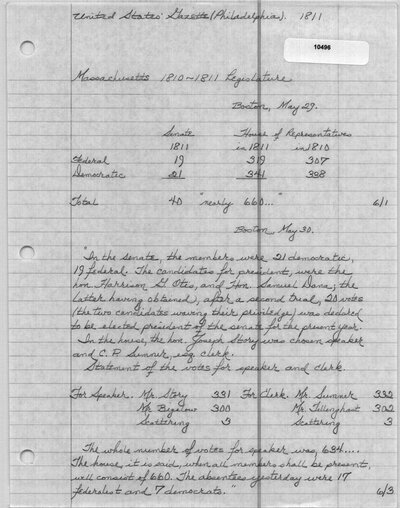 United States' Gazette (Philadelphia). 1811
10496
Massachusetts 1810-1811 Legislature
Boston, May 29.
Senate House of Representatives
1811 in 1811 in 1810
Federal 19 319 307
Democratic 21 341 338
Total 40 "nearly 660..." 6/1
Boston May 30.
"In the senate, the members were 21 democratic,
19 federal. The candidates for president, were the
hon. Harrison G. Otis, and Hon. Samuel Dana; the
latter having obtained, after a second trial, 20 votes
(the two candidates waving their priviledge) was declared
to be elected president of the senate for the present year.
In the house, the hon. Joseph Story was chosen speaker
and C. P. Sumner, esq. clerk.
Statement of the votes for speaker and clerk.
For Speaker. Mr. Story 331 For Clerk. Mr. Sumner 332
Mr. Bigelow 300 Mr. Tillinghast 302
Scattering 3 Scattering 3
The whole number of votes for speaker was, 634....
The house, it is said, when all members shall be present,
will consist of 660. The absentees yesterday were 17
federalist and 7 democrats. 6/3